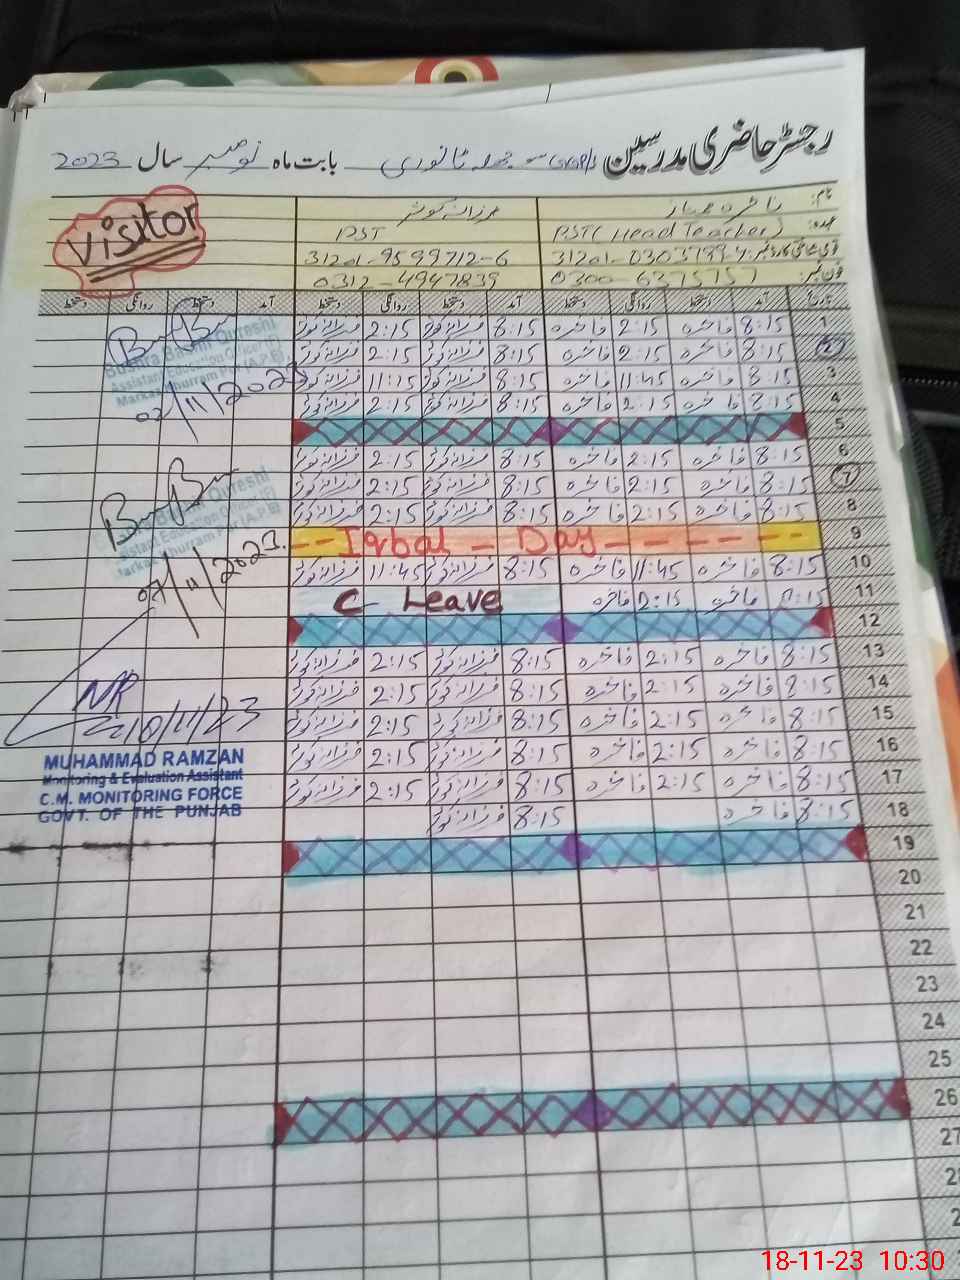 رجسٹر حاضری مدرسین (GGPS) بابت ماہ نومبر سال 2023
Visitor
نام: فاخرہ ممتاز فرزانہ کوثر
عہدہ: PST (Head Teacher) PST
قومی شناختی کارڈ نمبر: 31201-9599712-6
فون نمبر: 0300-6375757 0312-4947839
تاریخ آمد دستخط روانگی دستخط آمد دستخط روانگی دستخط آمد دستخط روانگی دستخط
1 8:15 فاخرہ 2:15 فاخرہ 8:15 فرزانہ کوثر 2:15 فرزانہ کوثر
2 8:15 فاخرہ 2:15 فاخرہ 8:15 فرزانہ کوثر 2:15 فرزانہ کوثر
3 8:15 فاخرہ 11:45 فاخرہ 8:15 فرزانہ کوثر فرزانہ کوثر
4 8:15 فاخرہ 2:15 فاخرہ 8:15 فرزانہ کوثر 2:15 فرزانہ کوثر
5
6 8:15 فاخرہ 2:15 فاخرہ 8:15 فرزانہ کوثر 2:15 فرزانہ کوثر
7 8:15 فاخرہ 2:15 فاخرہ 8:15 فرزانہ کوثر 2:15 فرزانہ کوثر
8 8:15 فاخرہ 2:15 فاخرہ 8:15 فرزانہ کوثر 2:15 فرزانہ کوثر
9 -- Iqbal - Day - - - - - -
10 8:15 فاخرہ 11:45 فاخرہ 8:15 فرزانہ کوثر 11:45 فرزانہ کوثر
11 8:15 فاخرہ 2:15 فاخرہ C Leave
12
13 8:15 فاخرہ 2:15 فاخرہ 8:15 فرزانہ کوثر 2:15 فرزانہ کوثر
14 8:15 فاخرہ 2:15 فاخرہ 8:15 فرزانہ کوثر 2:15 فرزانہ کوثر
15 8:15 فاخرہ 2:15 فاخرہ 8:15 فرزانہ کوثر 2:15 فرزانہ کوثر
16 8:15 فاخرہ 2:15 فاخرہ 8:15 فرزانہ کوثر 2:15 فرزانہ کوثر
17 8:15 فاخرہ 2:15 فاخرہ 8:15 فرزانہ کوثر 2:15 فرزانہ کوثر
18 8:15 فاخرہ 8:15 فرزانہ کوثر
19
20
21
22
23
24
25
26
27
Bushra Bashir Qureshi
Assistant Education Officer (F)
Markaz Khurram Pur (A.P.E)
02/11/2023
Qureshi
Assistant Education Officer (F)
Markaz Khurram Pur (A.P.E)
07/11/2023
MUHAMMAD RAMZAN
Monitoring & Evaluation Assistant
C.M. MONITORING FORCE
GOVT. OF THE PUNJAB
18-11-23 10:30